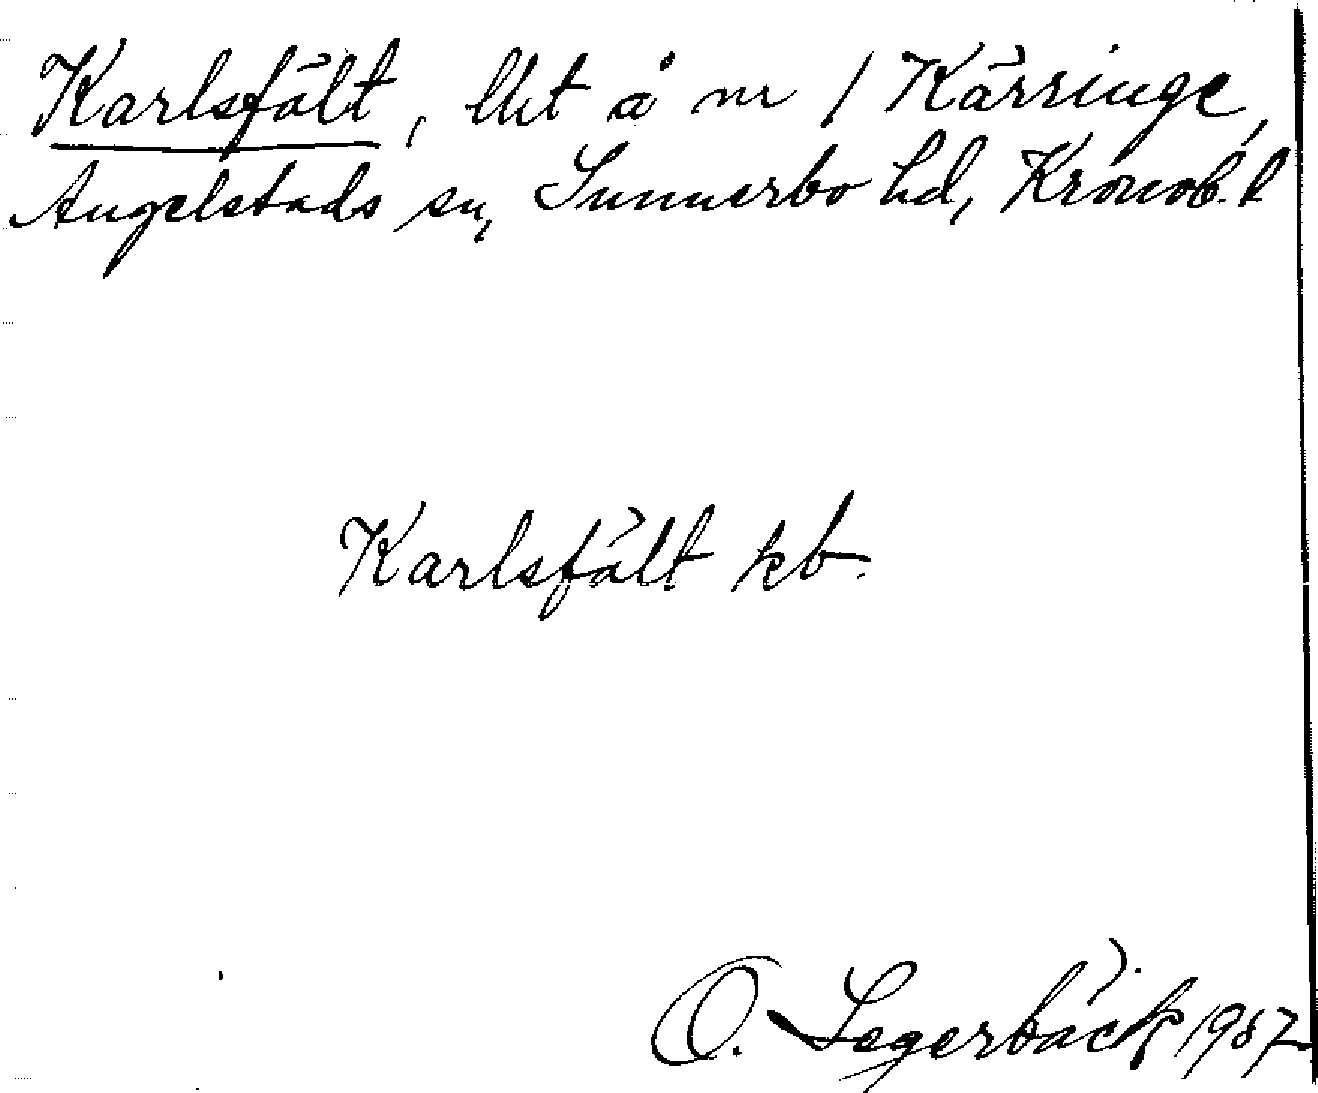 Karlsfält, lht å nr 1 Kärringe,
Angelstads sn, Sunnerbo hd, Kronob. l
Karlsfält kb.
O. Segerbäck 1957